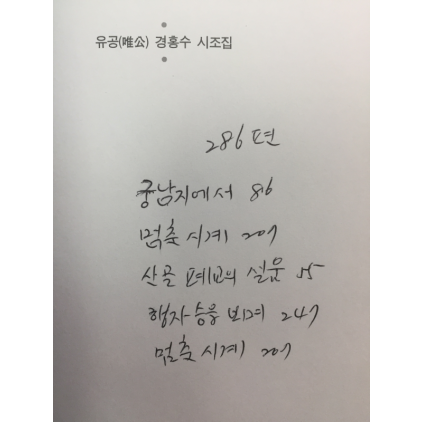 유공(唯公) 경홍수 시조집
286편
궁남지에서 86
멈춘 시계 207
산골 폐교의 설움 55
행자승웅 비계 247
멈춘 시계 207